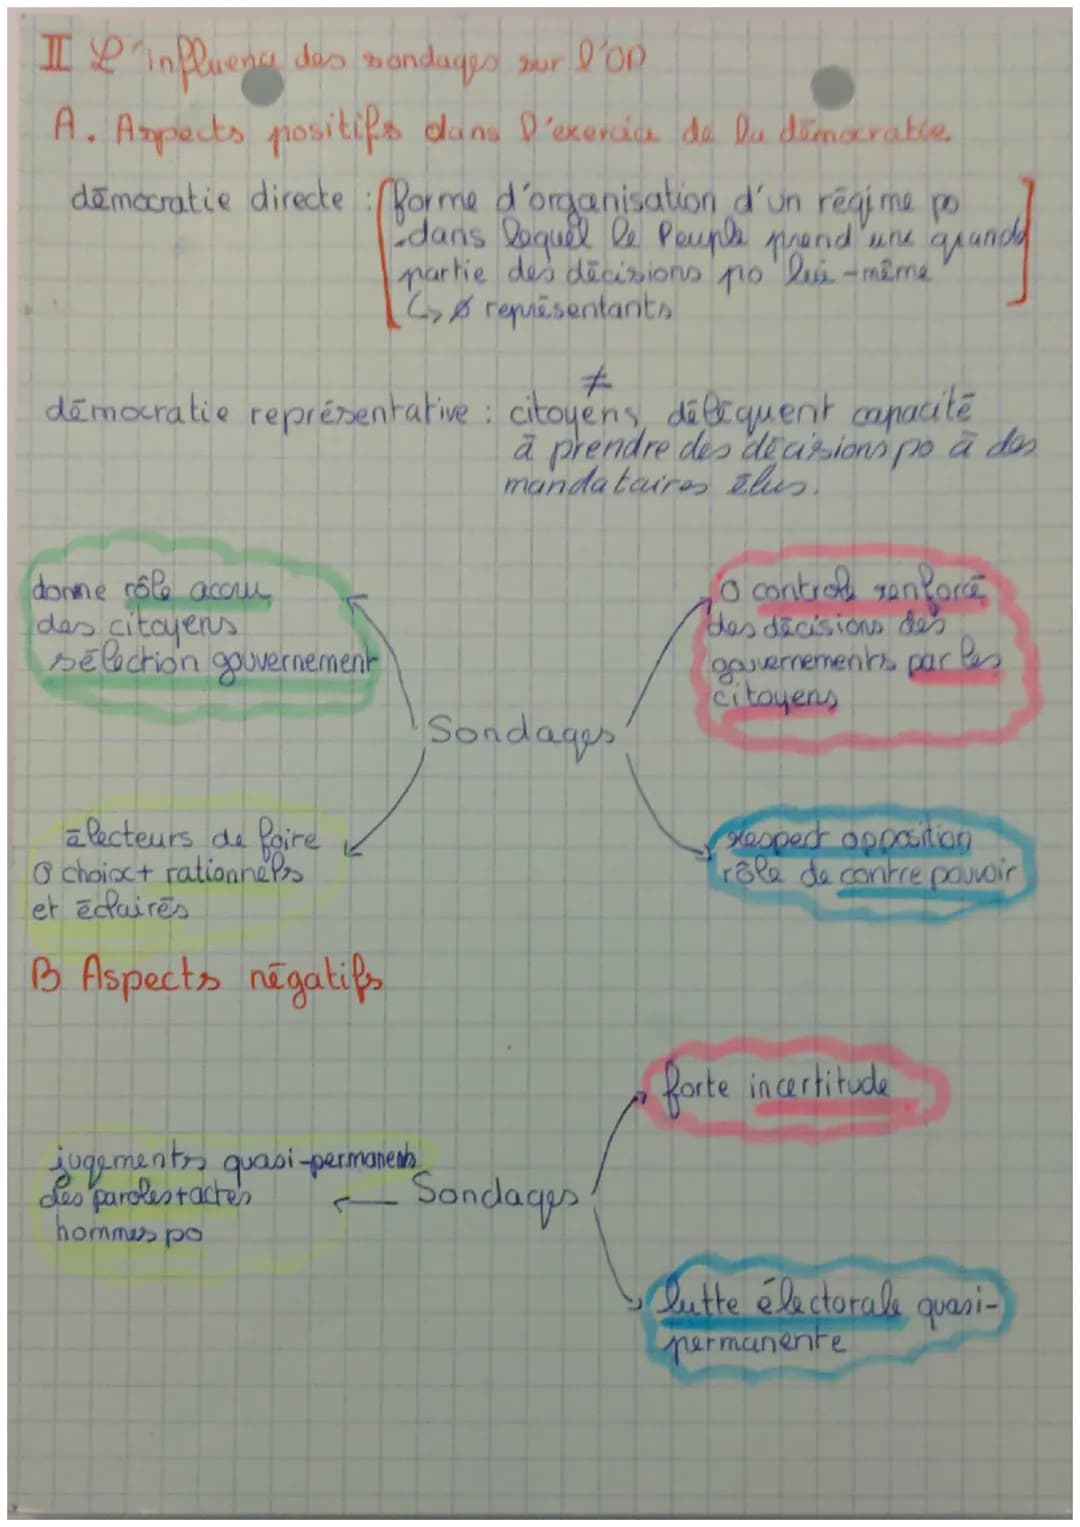 II L'influence des sondages sur l'OP
A. Aspects positifs dans l'exercice de la démocratie.
démocratie directe : [forme d'organisation d'un régime po
dans lequel le Peuple prend une grande
partie des décisions po lui-même
↳ Ø représentants]
≠
démocratie représentative : citoyens délèguent capacité
à prendre des décisions po à des
mandataires élus.
donne rôle accru
des citoyens
sélection gouvernement
contrôle renforcé
des décisions des
gouvernements par les
citoyens
Sondages
électeurs de faire
choix + rationnels
et éclairés
respect opposition
rôle de contre pouvoir
B Aspects négatifs
forte incertitude
jugements quasi-permanents
des paroles + actes
hommes po
Sondages
lutte électorale quasi-
permanente